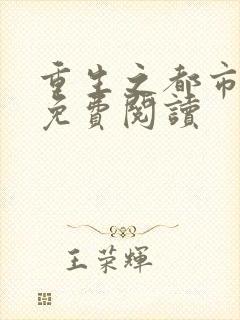 重生之都市
免費閱讀
王荣輝